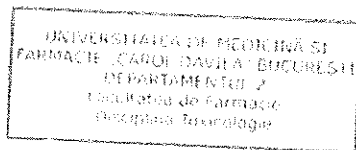 UNIVERSITATEA DE MEDICINĂ ȘI
FARMACIE „CAROL DAVILA” BUCUREȘTI
DEPARTAMENTUL 2
Facultatea de Farmacie
Disciplina Toxicologie